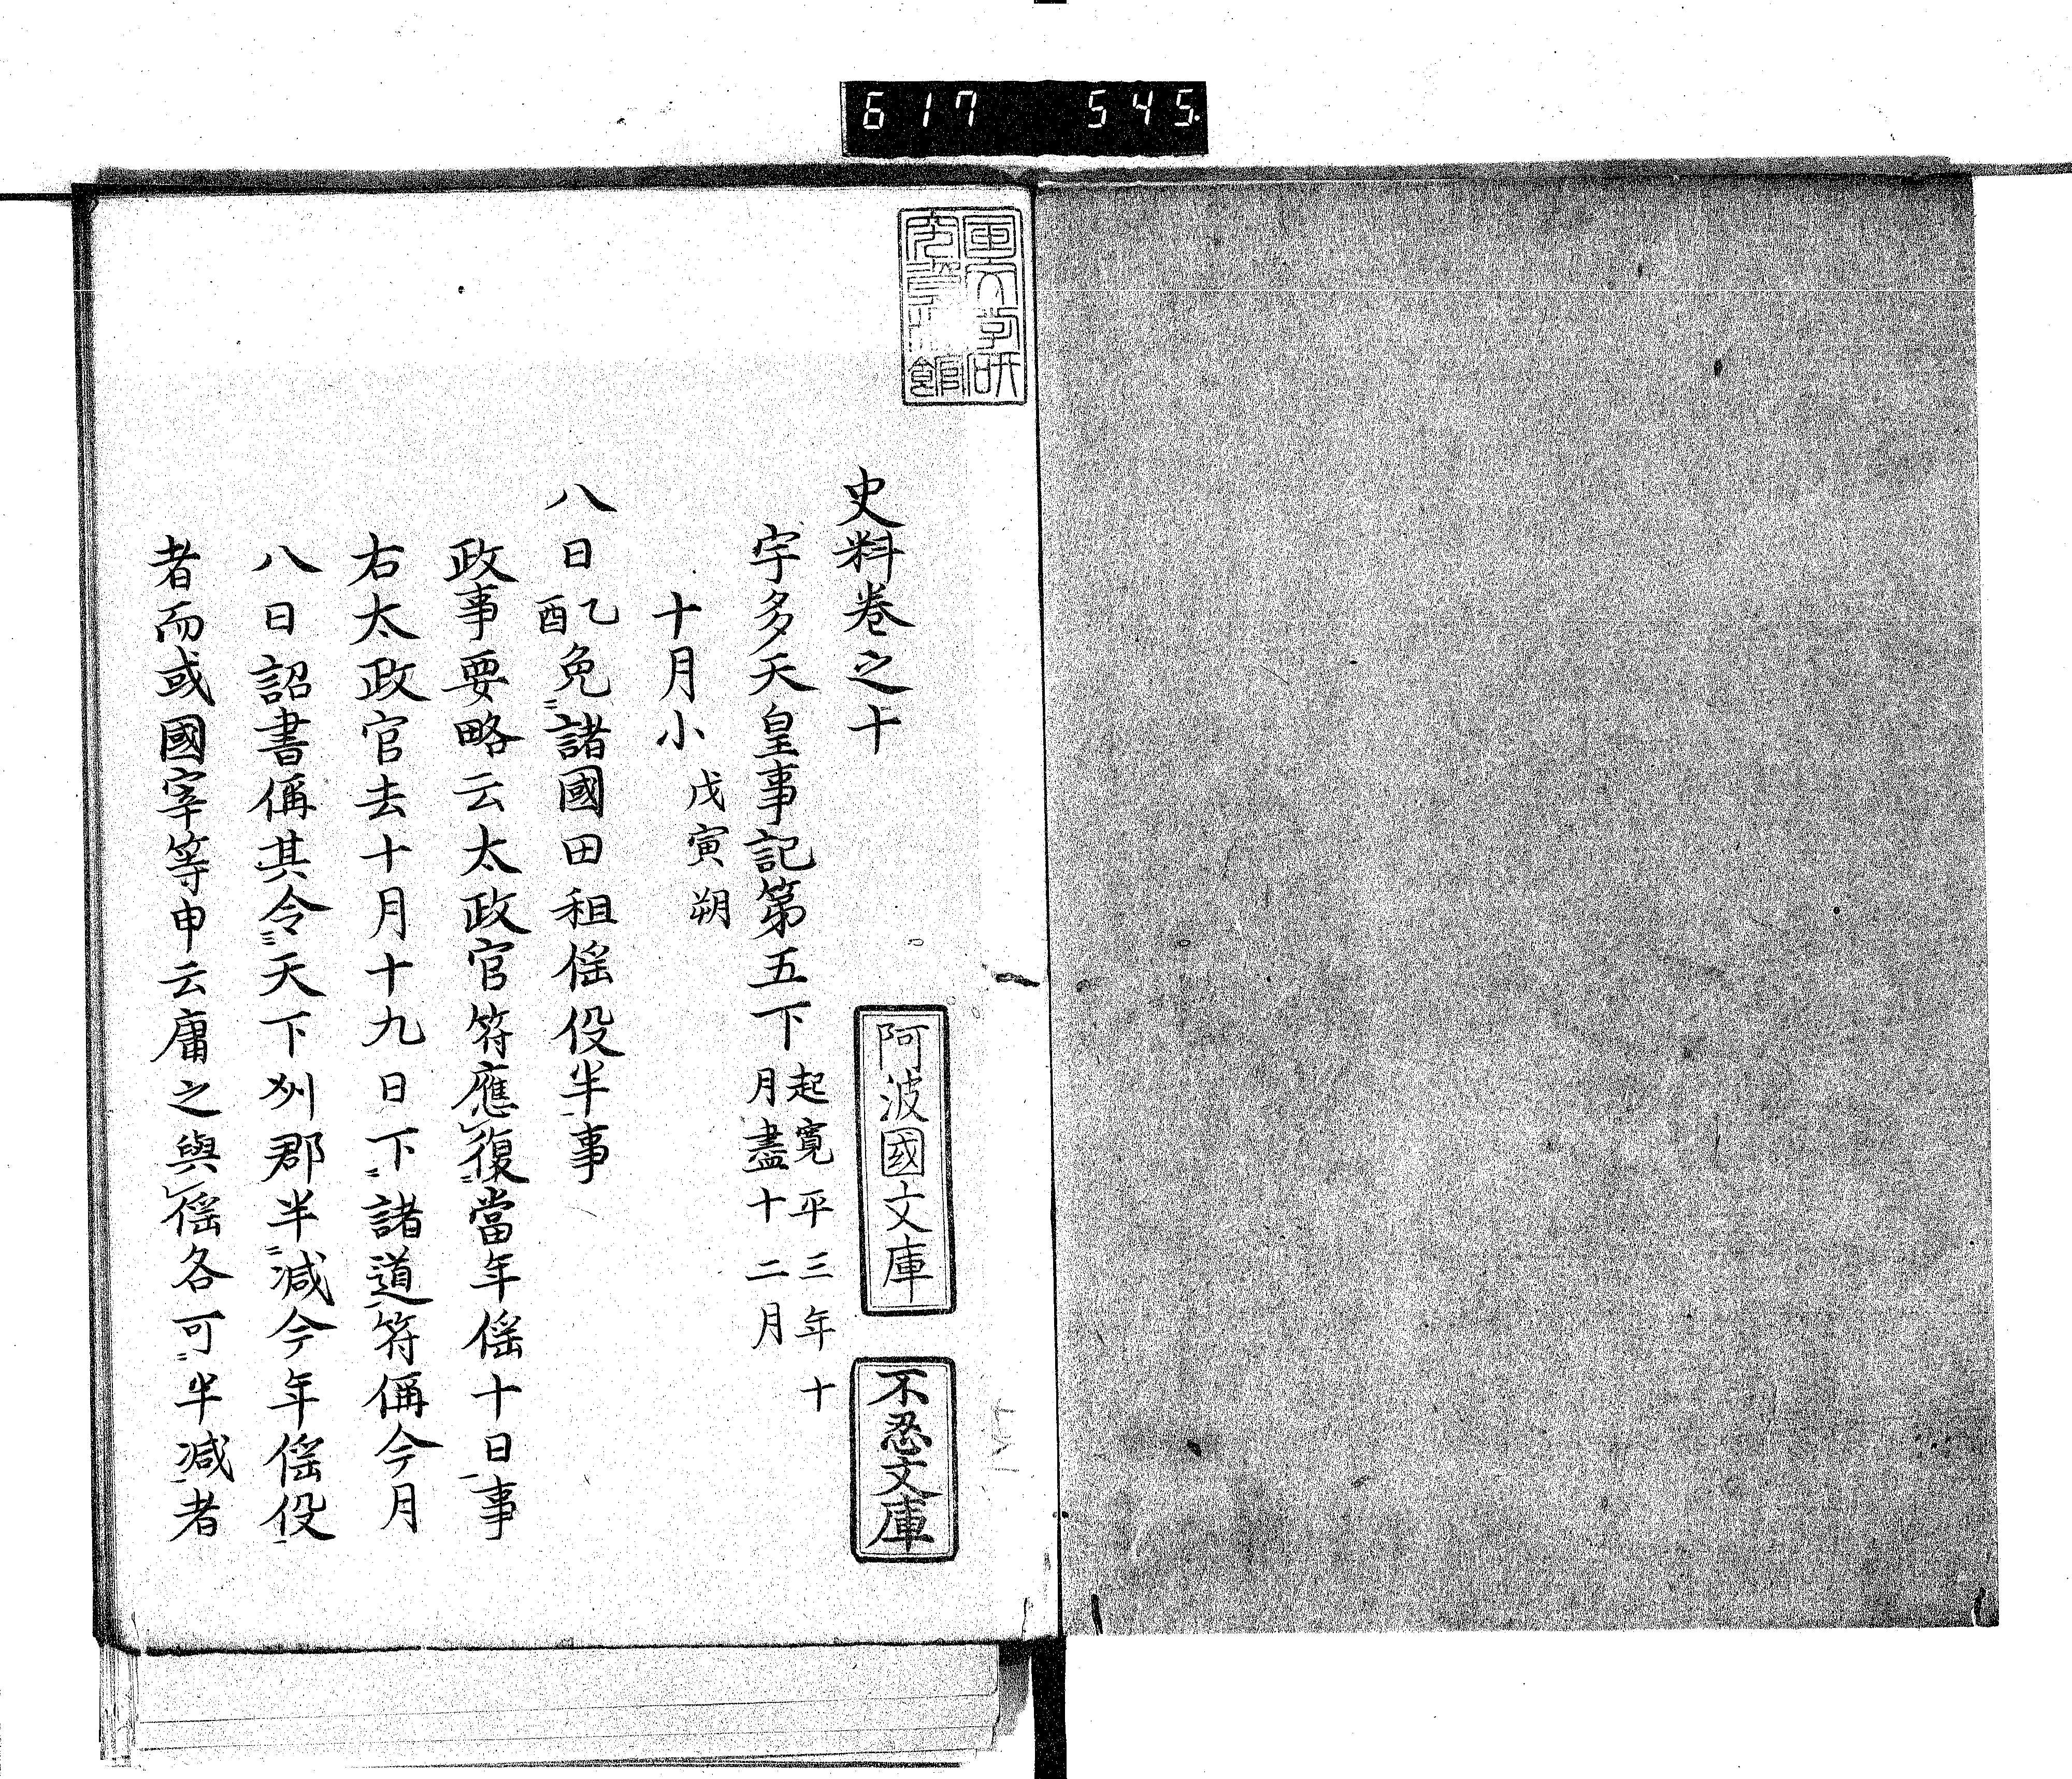 617 545
史料卷之十
宇多天皇事記第五下 起寛平三年十月盡十二月
十月小 戊寅朔
八日乙酉免諸國田租徭役半事
政事要略云太政官符應復當年徭十日事
右太政官去十月十九日下諸道符偁今月
八日詔書偁其令天下州郡半減今年徭役
者而或國宰等申云庸之與徭各可半減者
阿波國文庫
不忍文庫